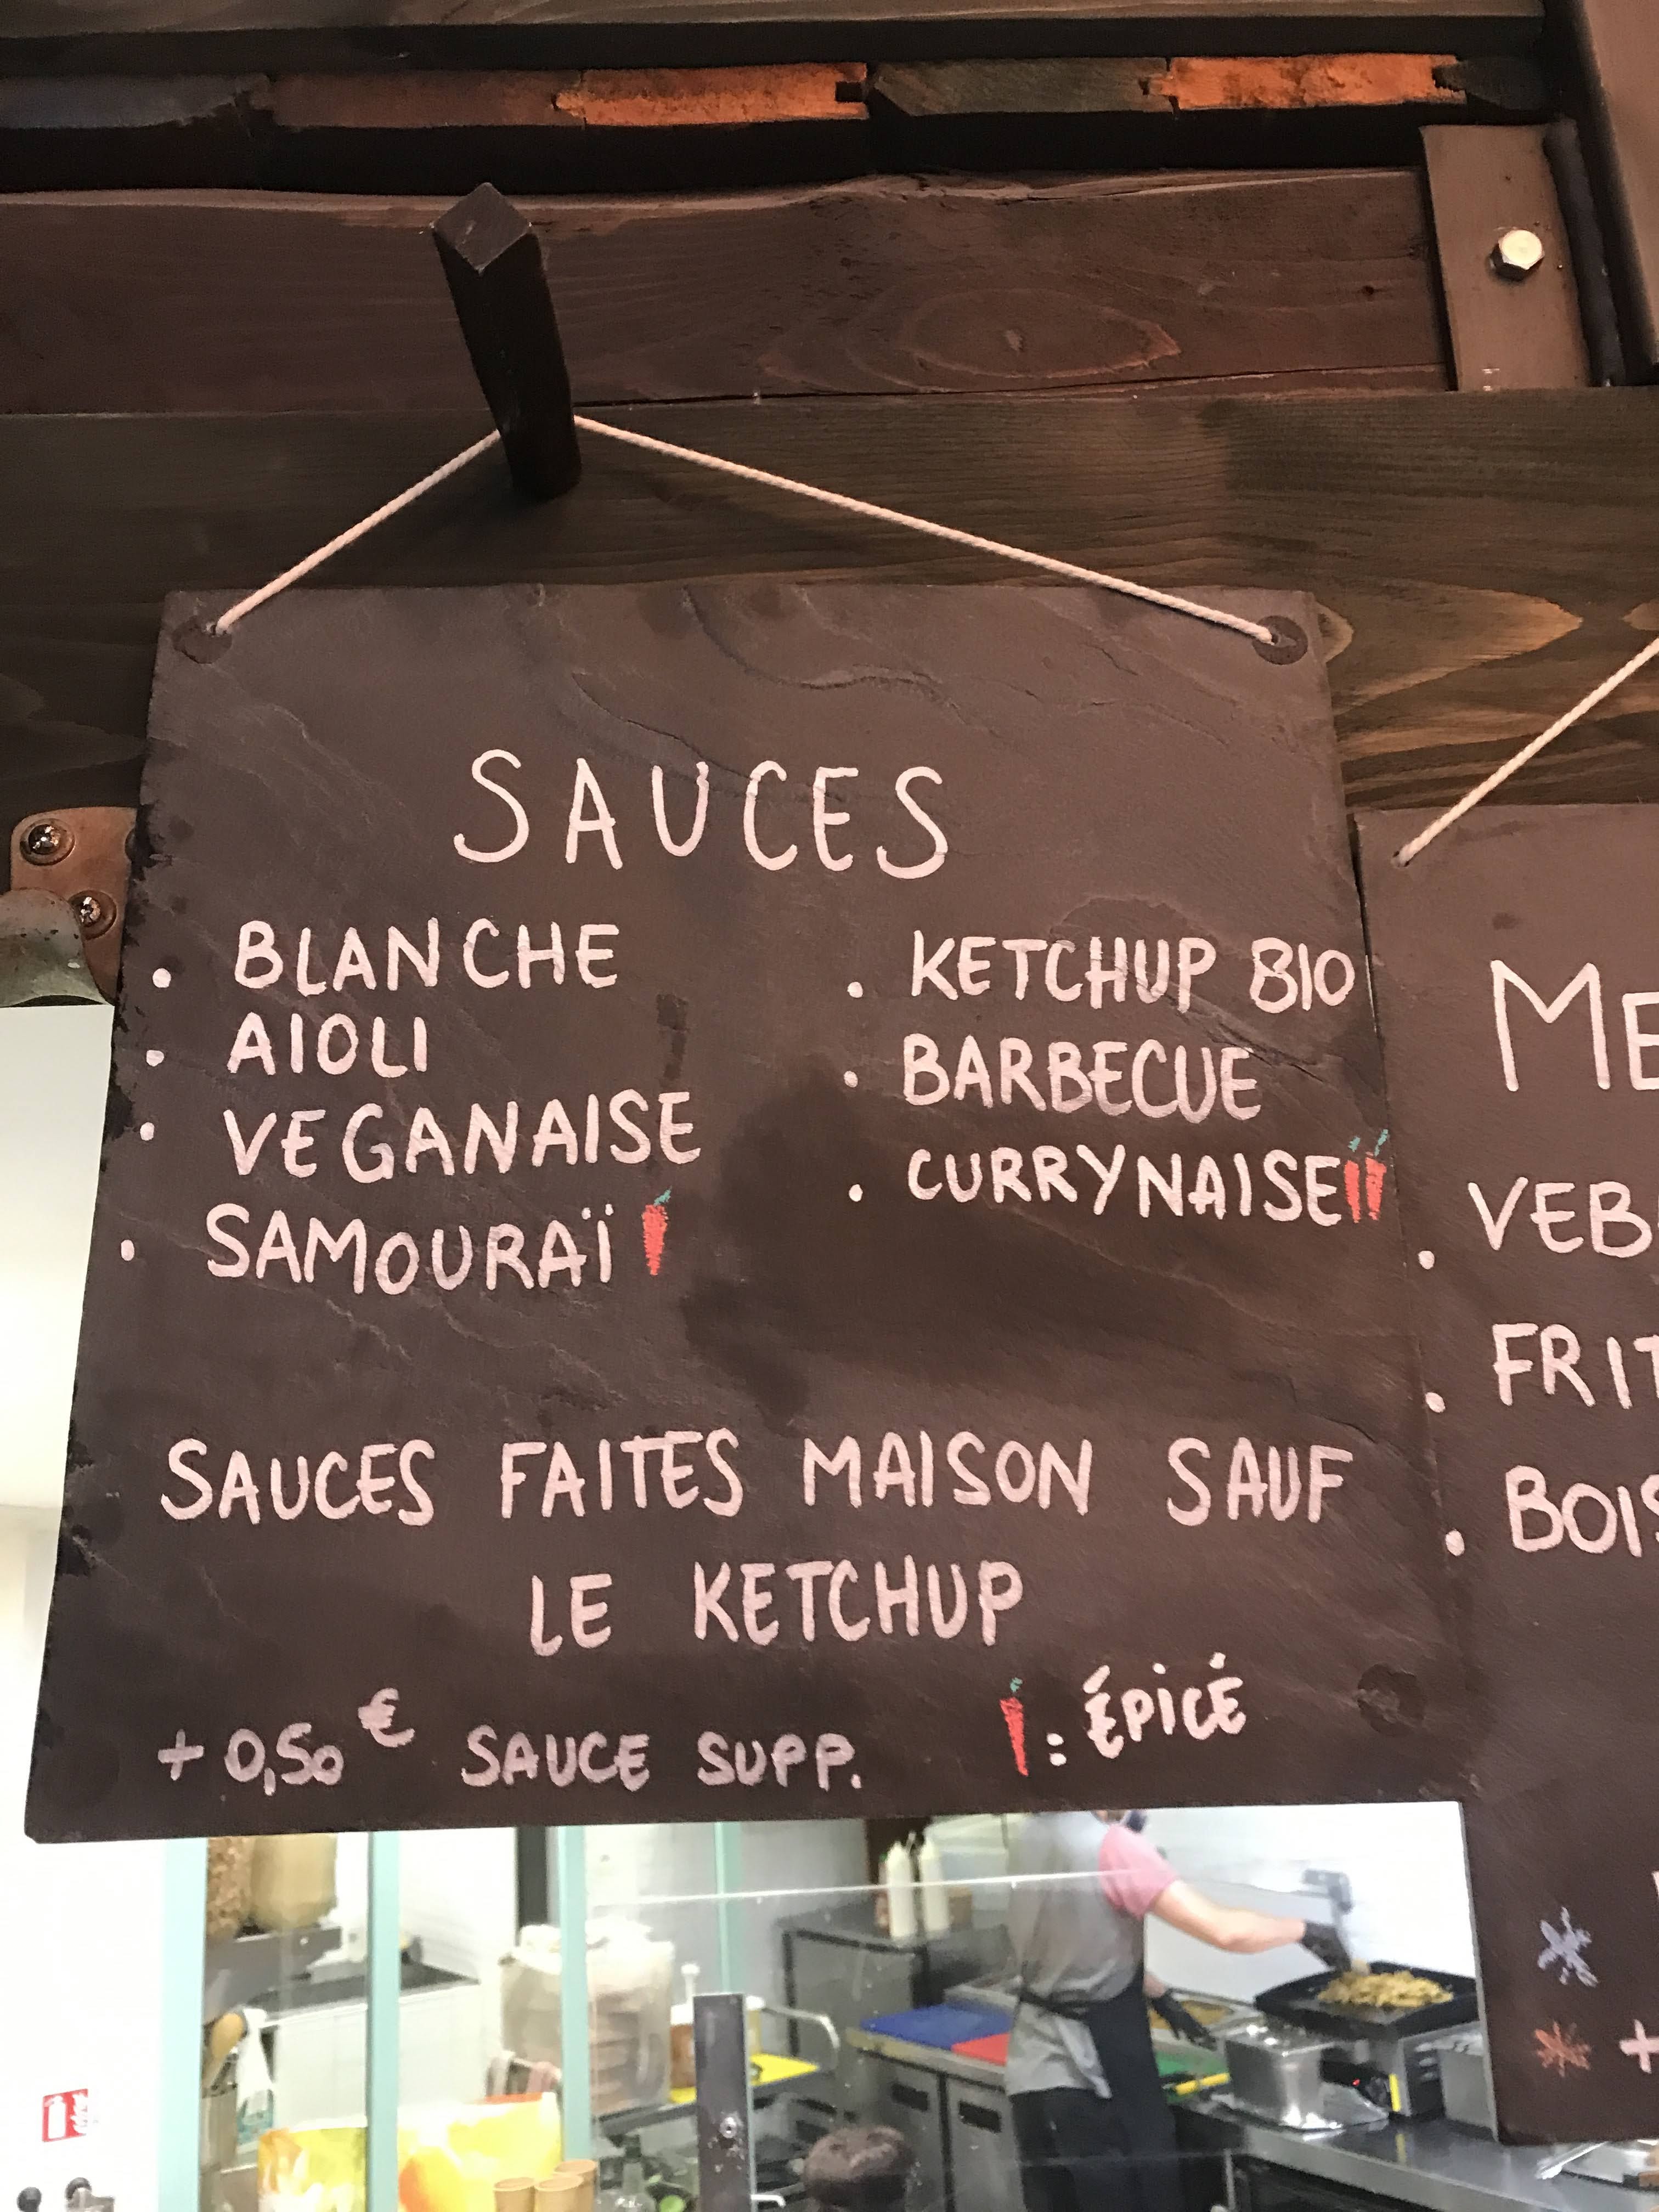 SAUCES
• BLANCHE
• AIOLI
• VEGANAISE
• SAMOURAÏ
• KETCHUP BIO
• BARBECUE
• CURRYNAISE
SAUCES FAITES MAISON SAUF
LE KETCHUP
+ 0,50 € SAUCE SUPP.
: ÉPICÉ